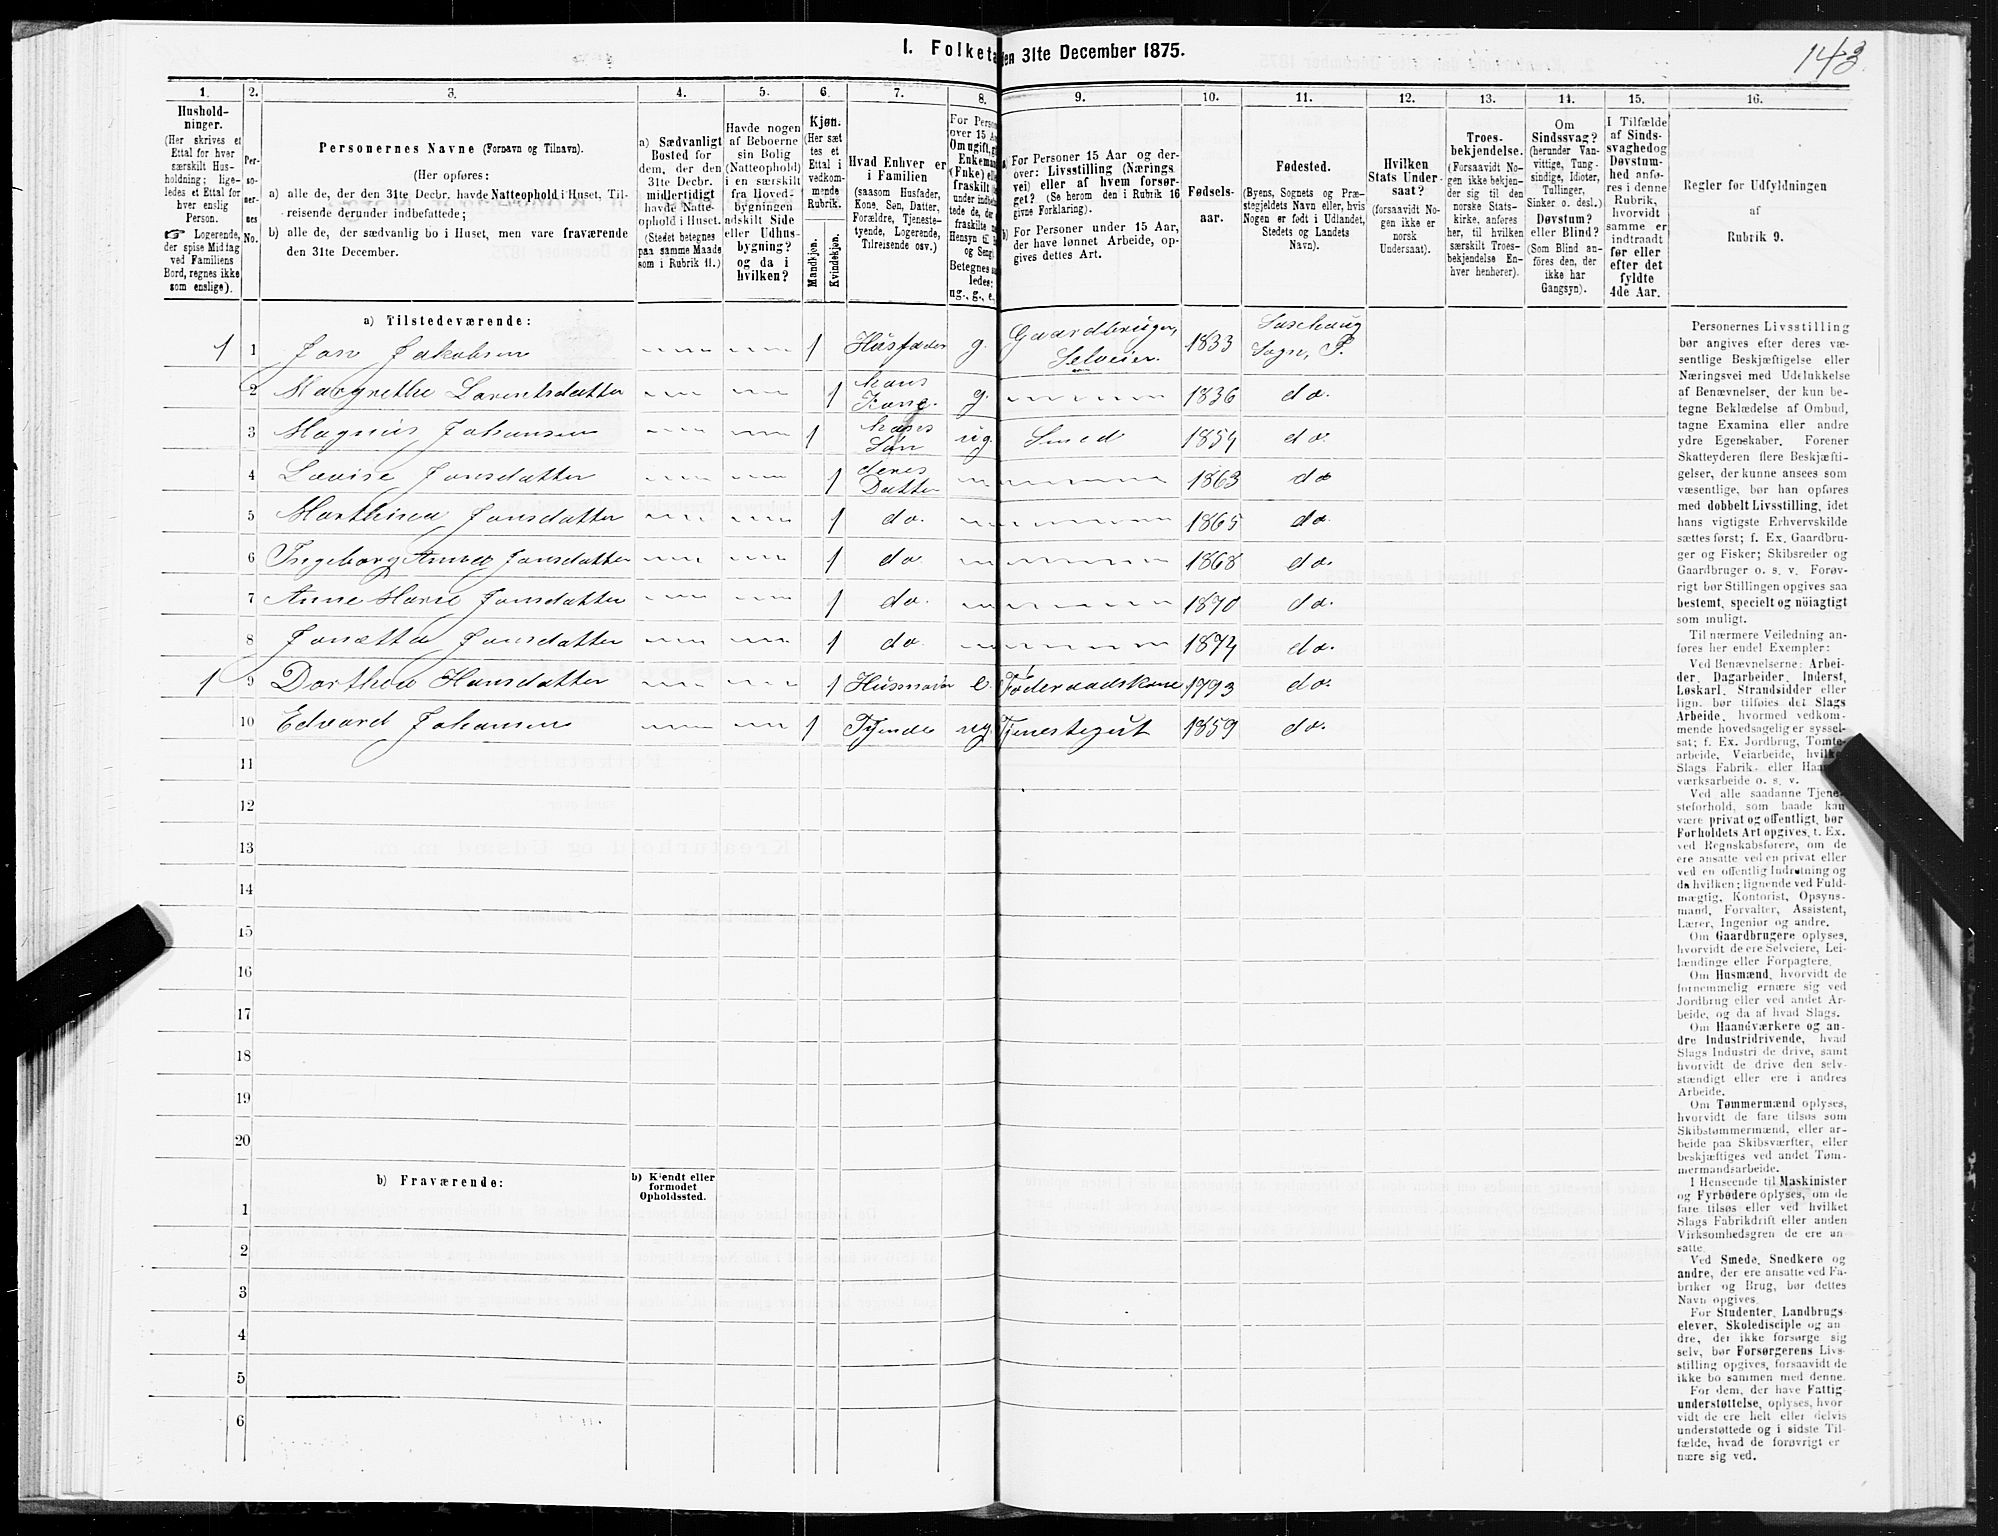 143
I. Folketa
en 31te December 1875.
1.
2.
3.
4.
5.
6.
7.
8.
9.
10.
11.
12.
13.
14.
15.
16.
Hushold-
ninger.
(Her skrives et
Ettal for hver
særskilt Hus-
holdning; lige-
ledes et Ettal for
hver enslig
Person.
☞ Logerende,
der spise Middag
ved Familiens
Bord, regnes ikke
som enslige).
Per-
so-
ner-
nes
No.
Personernes Navne (Fornavn og Tilnavn).
(Her opføres:
a) alle de, der den 31te Decbr. havde Natteophold i Huset, Til-
reisende derunder indbefattede;
b) alle de, der sædvanlig bo i Huset, men vare fraværende
den 31te December.
a) Sædvanligt
Bosted for
dem, der den
31te Decbr.
midlertidigt
havde Natte-
ophold i Huset.
(Stedet betegnes
paa samme Maade
som i Rubrik 11.)
Havde nogen
af Beboerne
sin Bolig
(Natteophold)
i en særskilt
fra Hoved-
bygningen
adskilt Side
eller Udhus-
bygning?
og da i
hvilken?
Kjøn.
(Her sæt-
tes et
Ettal i
vedkom-
mende
Rubrik.
Mandkjøn.
Kvindekjøn.
Hvad Enhver er
i Familien
(saasom Husfader,
Kone, Søn, Datter,
Forældre, Tjeneste-
tyende, Logerende,
Tilreisende osv.)
For Perso
over 15 Aa
Om ugift, g
Enkeman
(Enke) elle
fraskilt
under indbe
tede de, der
fraskilte
Hensyn til
og Seng)
Betegnes
ledes:
ug., g., e.
a) For Personer 15 Aar og der-
over: Livsstilling (Nærings-
vei) eller af hvem forsør-
get? (Se herom den i Rubrik 16
givne Forklaring).
b) For Personer under 15 Aar,
der have lønnet Arbeide, op-
gives dettes Art.
Fødsels-
aar.
Fødested.
(Byens, Sognets og Præ-
stegjeldets Navn eller, hvis
Nogen er født i Udlandet,
Stedets og Landets
Navn).
Hvilken
Stats Under-
saat?
(forsaavidt No-
gen ikke er
norsk
Undersaat).
Troes-
bekjendelse.
(Forsaavidt No-
gen ikke bekjen-
der sig til den
norske Stats-
kirke, anføres
her, til hvilken
særskilt Troes-
bekjendelse En-
hver henhører).
Om
Sindssvag?
(herunder Van-
vittige, Tung-
sindige, Idioter,
Tullinger,
Sinker o. desl.)
Døvstum?
eller Blind?
(Som Blind an-
føres den, der
ikke har
Gangsyn).
I Tilfælde
af Sinds-
svaghed og
Døvstum-
hed anfø-
res i denne
Rubrik,
hvorvidt
samme er
indtraadt
før eller
efter det
fyldte
4de Aar.
Regler for Udfyldningen
af
Rubrik 9.
a) Tilstedeværende:
1 1 Jon Jakobsen 1 Husfader g. Gaardbruger, Selveier. 1833 Sogn, P.
2 Margrethe Lorentsdatter 1 hans Kone. g. 1836 do.
3 Magnus Johansen 1 hans Søn ug. Smed 1854 do.
4 Lovise Jonsdatter 1 deres Datter 1863 do
5 Marthina Jonsdatter 1 do. 1865 do.
6 Ingeborg Anna Jonsdatter 1 do 1868 do.
7 Anne Marie Jonsdatter 1 do. 1870 do.
8 Jonetta Jonsdatter 1 do. 1874 do.
1 9 Dorthea Hansdatter 1 e. Føderaadskone 1793 do.
10 Edvard Johansen 1 Tjende ug. Tjenestegut 1859 do.
11
12
13
14
15
16
17
18
19
20
b) Fraværende:
b) Kjendt eller
formodet
Opholdssted.
1
2
3
4
5
6
Personernes Livsstilling
bør angives efter deres væ-
sentlige Beskjæftigelse eller
Næringsvei med Udelukkelse
af Benævnelser, der kun be-
tegne Beklædelse af Ombud,
tagne Examina eller andre
ydre Egenskaber. Forener
Skatteyderen flere Beskjæfti-
gelser, der kunne ansees som
væsentlige, bør han opføres
med dobbelt Livsstilling, idet
hans vigtigste Erhvervskilde
sættes først; f. Ex. Gaardbru-
ger og Fisker; Skibsreder og
Gaardbruger o. s. v. Forøv-
rigt bør Stillingen opgives saa
bestemt, specielt og nöiagtigt
som muligt.
Til nærmere Veiledning an-
føres her endel Exempler:
Ved Benævnelserne: Arbei-
der, Dagarbeider, Inderst,
Løskarl, Strandsidder eller
lign. bør tilføies det Slags
Arbeide, hvormed vedkom-
mende hovedsagelig er syssel-
sat; f. Ex. Jordbrug, Tomte-
arbeide, Veiarbeide, hvilke
Slags Fabrik- eller Haand-
værksarbeide o. s. v.
Ved alle saadanne Tjene-
steforhold, som baade kan
være privat og offentligt, bør
Forholdets Art opgives, t. Ex.
ved Regnskabsførere, om de
ere ansatte ved en privat eller
ved en offentlig Indretning og
da hvilken; lignende ved Fuld-
mægtig, Kontorist, Opsyns-
mand, Forvalter, Assistent,
Lærer, Ingeniør og andre.
Om Gaardbrugere oplyses,
hvorvidt de ere Selveiere, Lei-
lændinge eller Forpagtere.
Om Husmænd, hvorvidt de
fornemmelig ernære sig ved
Jordbrug eller ved andet Ar-
beide, og da af hvad Slags.
Om Haandværkere og an-
dre Industridrivende, hvad
Slags Industri de drive, samt
hvorvidt de drive den selv-
stændigt eller ere i andres
Arbeide.
Om Tømmermænd oplyses,
hvorvidt de fare tilsøs som
Skibstømmermænd, eller ar-
beide paa Skibsværfter, eller
beskjæftiges ved andet Tøm-
mermandsarbeide.
I Henseende til Maskinister
og Fyrbødere oplyses, om de
fare tilsøs eller ved hvilket
Slags Fabrikdrift eller anden
Virksomhedsgren de ere an-
satte.
Ved Smede, Snedkere og
andre, der ere ansatte ved Fa-
briker og Brug, bør dettes
Navn opgives.
For Studenter, Landbrugs-
elever, Skoledisciple og an-
dre, der ikke forsørge sig
selv, bør Forsørgerens Livs-
stilling opgives, forsaavidt de
ikke bo sammen med denne.
For dem, der have Fattig-
understøttelse, oplyses, hvor-
vidt de ere helt eller delvis
understøttede og i sidste Til-
fælde, hvad de forøvrigt er-
nære sig ved.